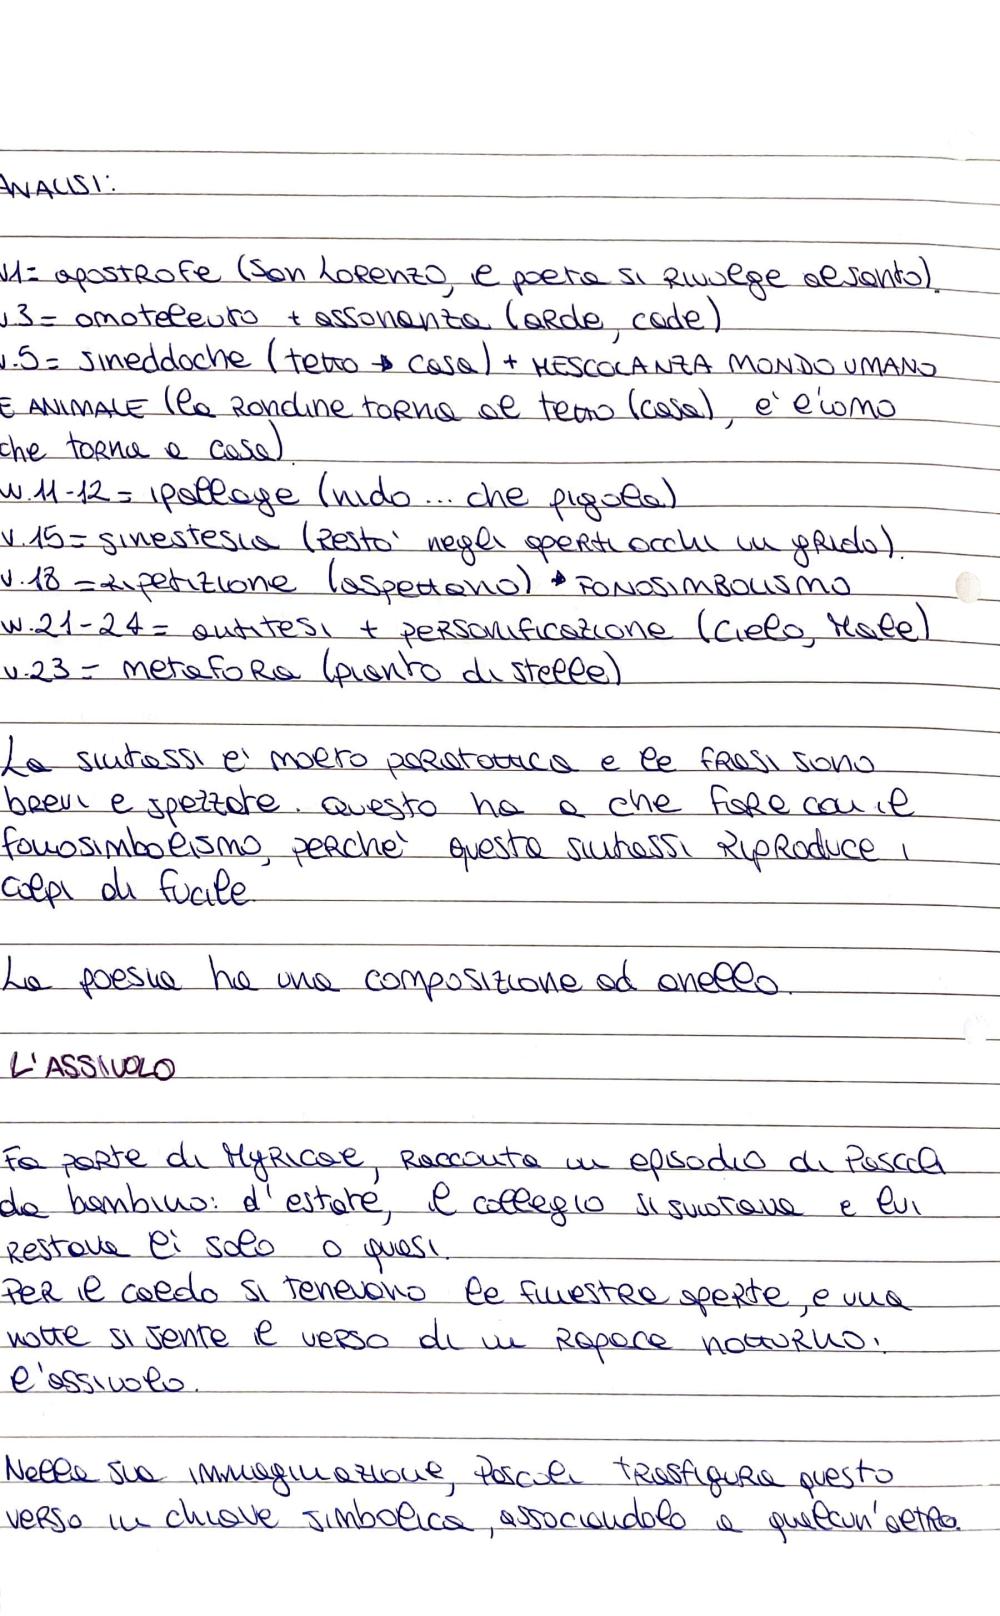 ANALISI:
v.1= apostrofe (San Lorenzo, il poeta si rivolge al santo).
v.3= omoteleuto + assonanza (arde, cade)
v.5= sineddoche (tetto → casa) + MESCOLANZA MONDO UMANO
E ANIMALE (la rondine torna al tetto (casa), è l'uomo
che torna a casa).
vv.11-12= ipallage (nido ... che pigola)
v.15= sinestesia (restò negli aperti occhi un grido).
v.18 = ripetizione (aspettano) → FONOSIMBOLISMO
vv.21-24= antitesi + personificazione (Cielo, Male)
v.23 = metafora (pianto di stelle)
La sintassi è molto paratattica e le frasi sono
brevi e spezzate. Questo ha a che fare con il
fonosimbolismo, perchè questa sintassi riproduce i
colpi di fucile.
La poesia ha una composizione ad anello.
L'ASSIUOLO
Fa parte di Myricae, racconta un episodio di Pascoli
da bambino: d'estate, il collegio si svuotava e lui
restava lì solo o quasi.
Per il caldo si tenevano le finestre aperte, e una
notte si sente il verso di un rapace notturno:
l'assiuolo.
Nella sua immaginazione, Pascoli trasfigura questo
verso in chiave simbolica, associandolo a qualcun'altro.